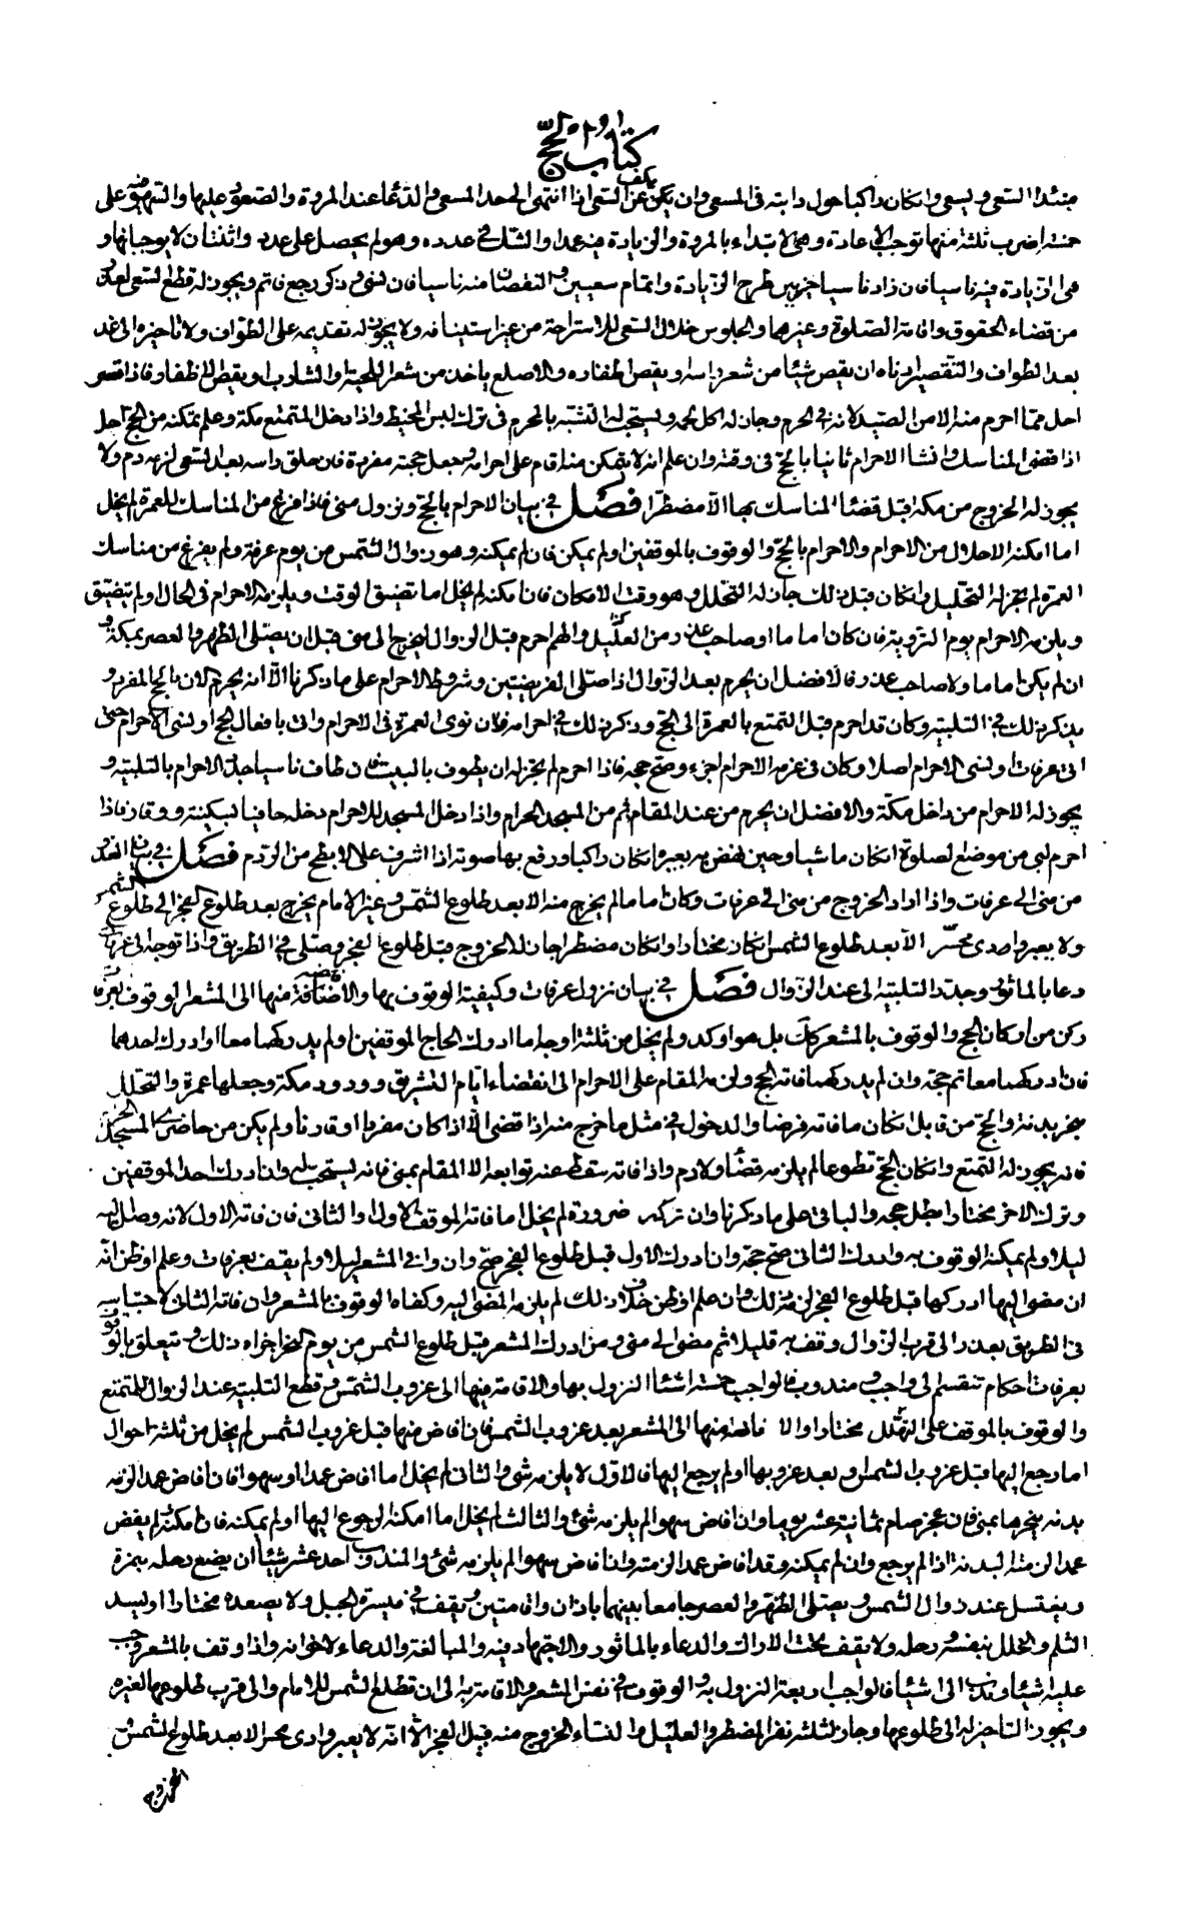 كتاب الحج
مبتدئا السعي ويسعى وان كان راكبا حول دابته في المسعى وان يكف عن السعي اذا انتهى الى حد المسعى والدعاء عند المروة والصعود عليها والسهو فيه على
خمسة اضرب ثلثة منها توجب الاعادة وهي الابتداء بالمروة والزيادة فيه عمدا والشك في عدده وهو لم يحصل على عدد واثنتان لا يوجبانها و
هي الزيادة فيه ناسيا فان زاد ناسيا خير بين طرح الزيادة واتمام سعيين والنقصان منه ناسيا فان نسي وذكر رجع فاتم ويجوز له قطع السعي لعذر
من قضاء الحقوق واقامة الصلوة وغيرهما والجلوس خلال السعي للاستراحة من غير استيناف ولا يجوز له تقديمه على الطواف ولا تاخيره الى غد
بعد الطواف والتقصير ادناه ان يقص شيئا من شعر راسه ويقص اظفاره والاصلع ياخذ من شعر اللحية او الشارب او يقص الاظفار فاذا قصر
احل مما احرم منه الا من الصيد لانه في الحرم وجاز له اكل لحمه ويستحب له التشبه بالمحرم في ترك لبس المخيط واذا دخل المتمتع مكة وعلم تمكنه من الحج احل
اذا قضى المناسك وانشأ الاحرام ثانيا بالحج في وقته وان علم انه لا يتمكن منه اقام على احرامه وجعل حجته مفردة فان حلق راسه بعد السعي لزمه دم ولا
يجوز له الخروج من مكة قبل قضاء المناسك بها الا مضطرا فصل في بيان الاحرام بالحج ونزول منى فاذا فرغ من المناسك للعمرة لم يخل
اما امكنه الاحلال من الاحرام والاحرام بالحج والوقوف بالموقفين او لم يمكن فان لم يمكنه وهو زوال الشمس من يوم عرفة ولم يفرغ من مناسك
العمرة لم يجز له التحليل وان كان قبل ذلك جاز له التحلل وهو وقت الامكان فان امكنه لم يخل اما تضيق الوقت ويلزمه الاحرام في الحال او لم يتضيق
ويلزمه الاحرام يوم التروية فان كان اماما او صاحب عذر من العليل والهم احرم قبل الزوال ليخرج الى منى قبل ان يصلي الظهر والعصر بمكة و
ان لم يكن اماما ولا صاحب عذر فالافضل ان يحرم بعد الزوال اذا صلى الفريضتين وشروط الاحرام على ما ذكرنا الا انه يحرم الان بالحج المفرد و
يذكر ذلك في التلبية وكان قد احرم قبل التمتع بالعمرة الى الحج وذكر ذلك في احرامه فان نوى العمرة في الاحرام واتى بافعال الحج او نسي الاحرام حتى
اتى عرفات او نسي الاحرام اصلا وكان في عزمه الاحرام اجزء وصح حجه فاذا احرم لم يجز له ان يطوف بالبيت فان طاف ناسيا جدد الاحرام بالتلبية و
يجوز له الاحرام من داخل مكة والافضل ان يحرم من عند المقام ثم من المسجد الحرام واذا دخل المسجد للاحرام دخله حافيا بسكينة ووقار فاذا
احرم لبى من موضع الصلوة ان كان ماشيا وحين نهض به بعيره ان كان راكبا ورفع بها صوته اذا اشرف على الابطح من الردم فصل في بيان الغدو
من منى الى عرفات واذا اراد الخروج من منى الى عرفات وكان اماما لم يخرج منه الا بعد طلوع الشمس وغير الامام يخرج بعد طلوع الفجر الى طلوع الشمس
ولا يعبر وادي محسر الا بعد طلوع الشمس ان كان مختارا وان كان مضطرا جاز له الخروج قبل طلوع الفجر وصلى في الطريق واذا توجه الى عرفات
دعا بالماثور وجدد التلبية الى عند الزوال فصل في بيان نزول عرفات وكيفية الوقوف بها والافاضة منها الى المشعر الوقوف بعرفات
ركن من اركان الحج والوقوف بالمشعر كذلك بل هو اوكد ولم يخل من ثلثة اوجه اما ادرك الحاج الموقفين او لم يدركهما معا او ادرك احدهما
فان ادركهما معا تم حجه وان لم يدركهما فاته الحج ولزمه المقام على الاحرام الى انقضاء ايام التشريق وورود مكة وجعلها عمرة والتحلل
بنحر بدنة والحج من قابل ان كان ما فاته فرضا والدخول في مثل ما خرج منه اذا قضى الا اذا كان مفردا او قارنا ولم يكن من حاضري المسجد الحرام
فانه يجوز له التمتع وان كان الحج تطوعا لم يلزمه قضاء ولا دم واذا فاته سقط عنه توابعه الا المقام بمنى فانه يستحب له وان ادرك احد الموقفين
وترك الاخر مختارا بطل حجه والباقي على ما ذكرنا وان تركه ضرورة لم يخل اما فاته الموقف الاول او الثاني فان فاته الاول لانه وصل اليه
ليلا ولم يمكنه الوقوف به وادرك الثاني صح حجه وان ادرك الاول قبل طلوع الفجر صح وان وافى المشعر ليلا ولم يقف بعرفات وعلم او ظن انه
ان مضى اليها ادركها قبل طلوع الفجر لزمه ذلك وان علم او ظن خلاف ذلك لم يلزمه المضي اليه وكفاه الوقوف بالمشعر وان فاته الثاني لاحتباسه
في الطريق بعذر الى قرب الزوال وقف به قليلا ثم مضى الى منى ومن ادرك المشعر قبل طلوع الشمس من يوم النحر اجزاه ذلك ويتعلق بالوقوف
بعرفات احكام تنقسم الى واجب ومندوب فالواجب خمسة اشياء النزول بها والاقامة فيها الى غروب الشمس وقطع التلبية عند الزوال للمتمتع
والوقوف بالموقف على مختارا والافاضة منها الى المشعر بعد غروب الشمس فان افاض منها قبل غروب الشمس لم يخل من ثلثة احوال
اما رجع اليها قبل غروب الشمس او بعد غروبها او لم يرجع اليها فالاول لا يلزمه شئ والثاني لم يخل اما افاض عمدا او سهوا فان افاض عمدا لزمه
بدنة ينحرها بمنى فان عجز صام ثمانية عشر يوما وان افاض سهوا لم يلزمه شئ والثالث لم يخل اما امكنه الرجوع اليها او لم يمكنه فان امكنه ولم يفض
عمدا لزمته البدنة اذا لم يرجع وان لم يمكنه وقد افاض عمدا لزمته وان افاض سهوا لم يلزمه شئ والمندوب احد عشر شيئا ان يضع رحله بنمرة
ويغتسل عند زوال الشمس ويصلي الظهر والعصر جامعا بينهما باذان واقامتين ويقف في ميسرة الجبل ولا يصعده مختارا او ليسد
الثلم والخلل بنفسه ورحله ولا يقف تحت الاراك والدعاء بالماثور والاجتهاد فيه والمبالغة والدعاء لاخوانه واذا وقف بالمشعر وجب
عليه اشياء وندب الى شئ فالواجب اربعة النزول به والوقوف في نفس المشعر والاقامة به الى ان تطلع الشمس للامام والى قرب طلوعها لغيره
ويجوز التاخير له الى طلوعها وجاز لثلثة نفر المضطر والعليل والنساء الخروج منه قبل الفجر الا انه لا يعبر وادي محسر الا بعد طلوع الشمس